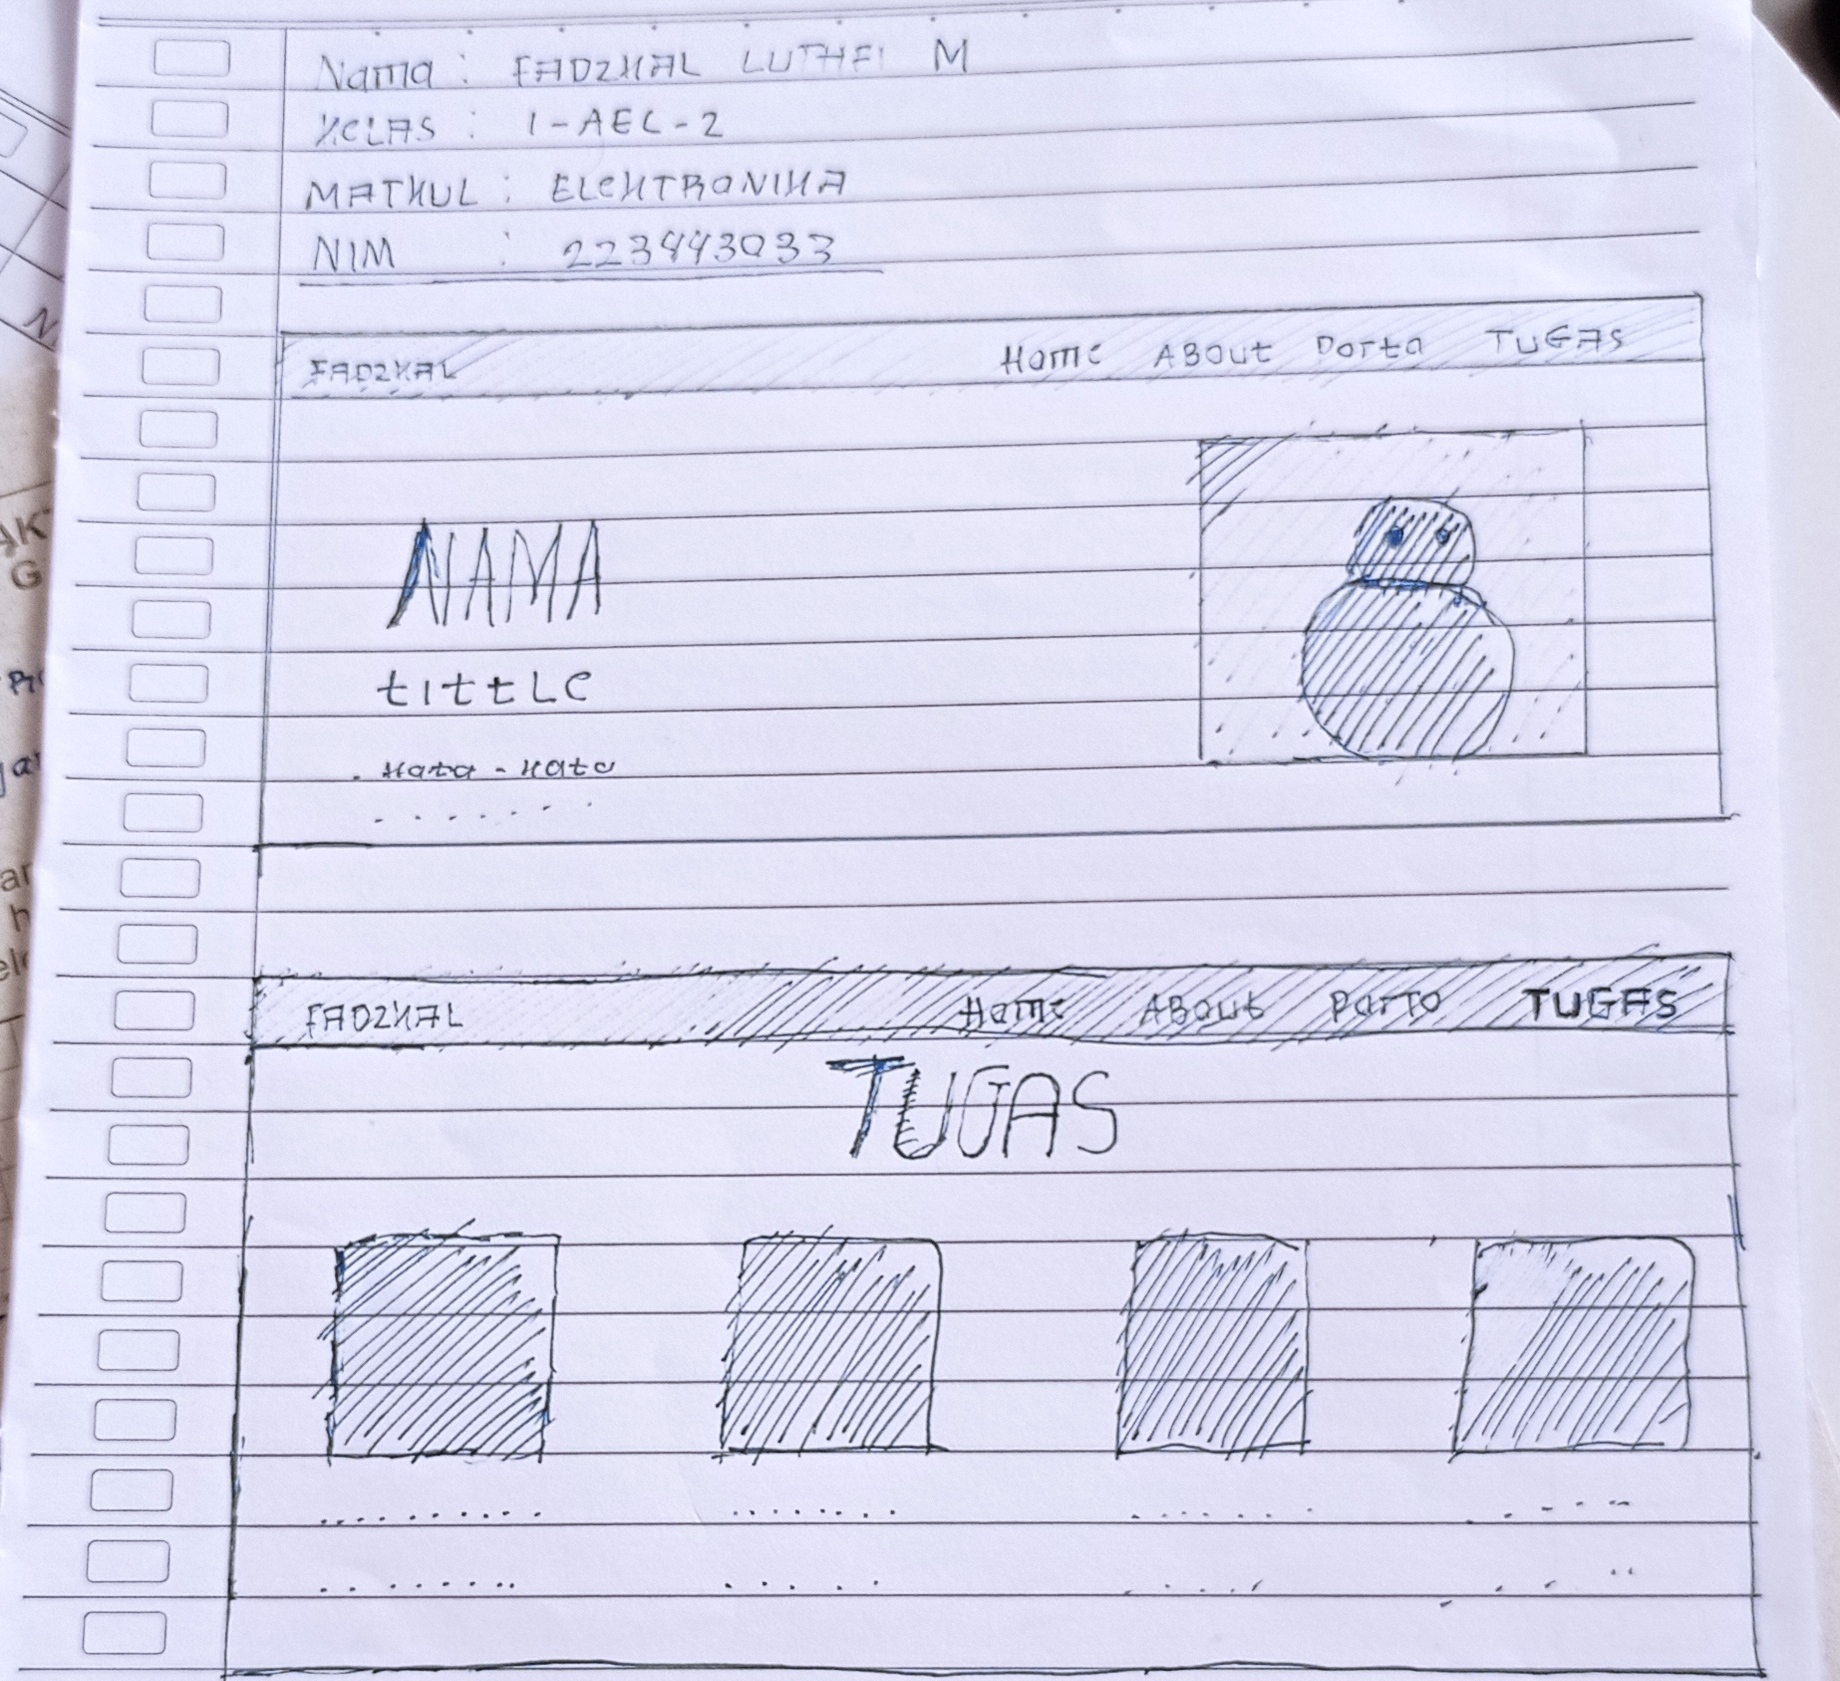 Nama : FADZKAL LUTHFI M
KELAS : 1-AEC-2
MATKUL : ELEKTRONIKA
NIM : 223443033
FADZKAL Home ABOUt Porto TUGAS
NAMA
tittLe
Kata-Kata
FADZKAL Home ABout PorTO TUGAS
TUGAS